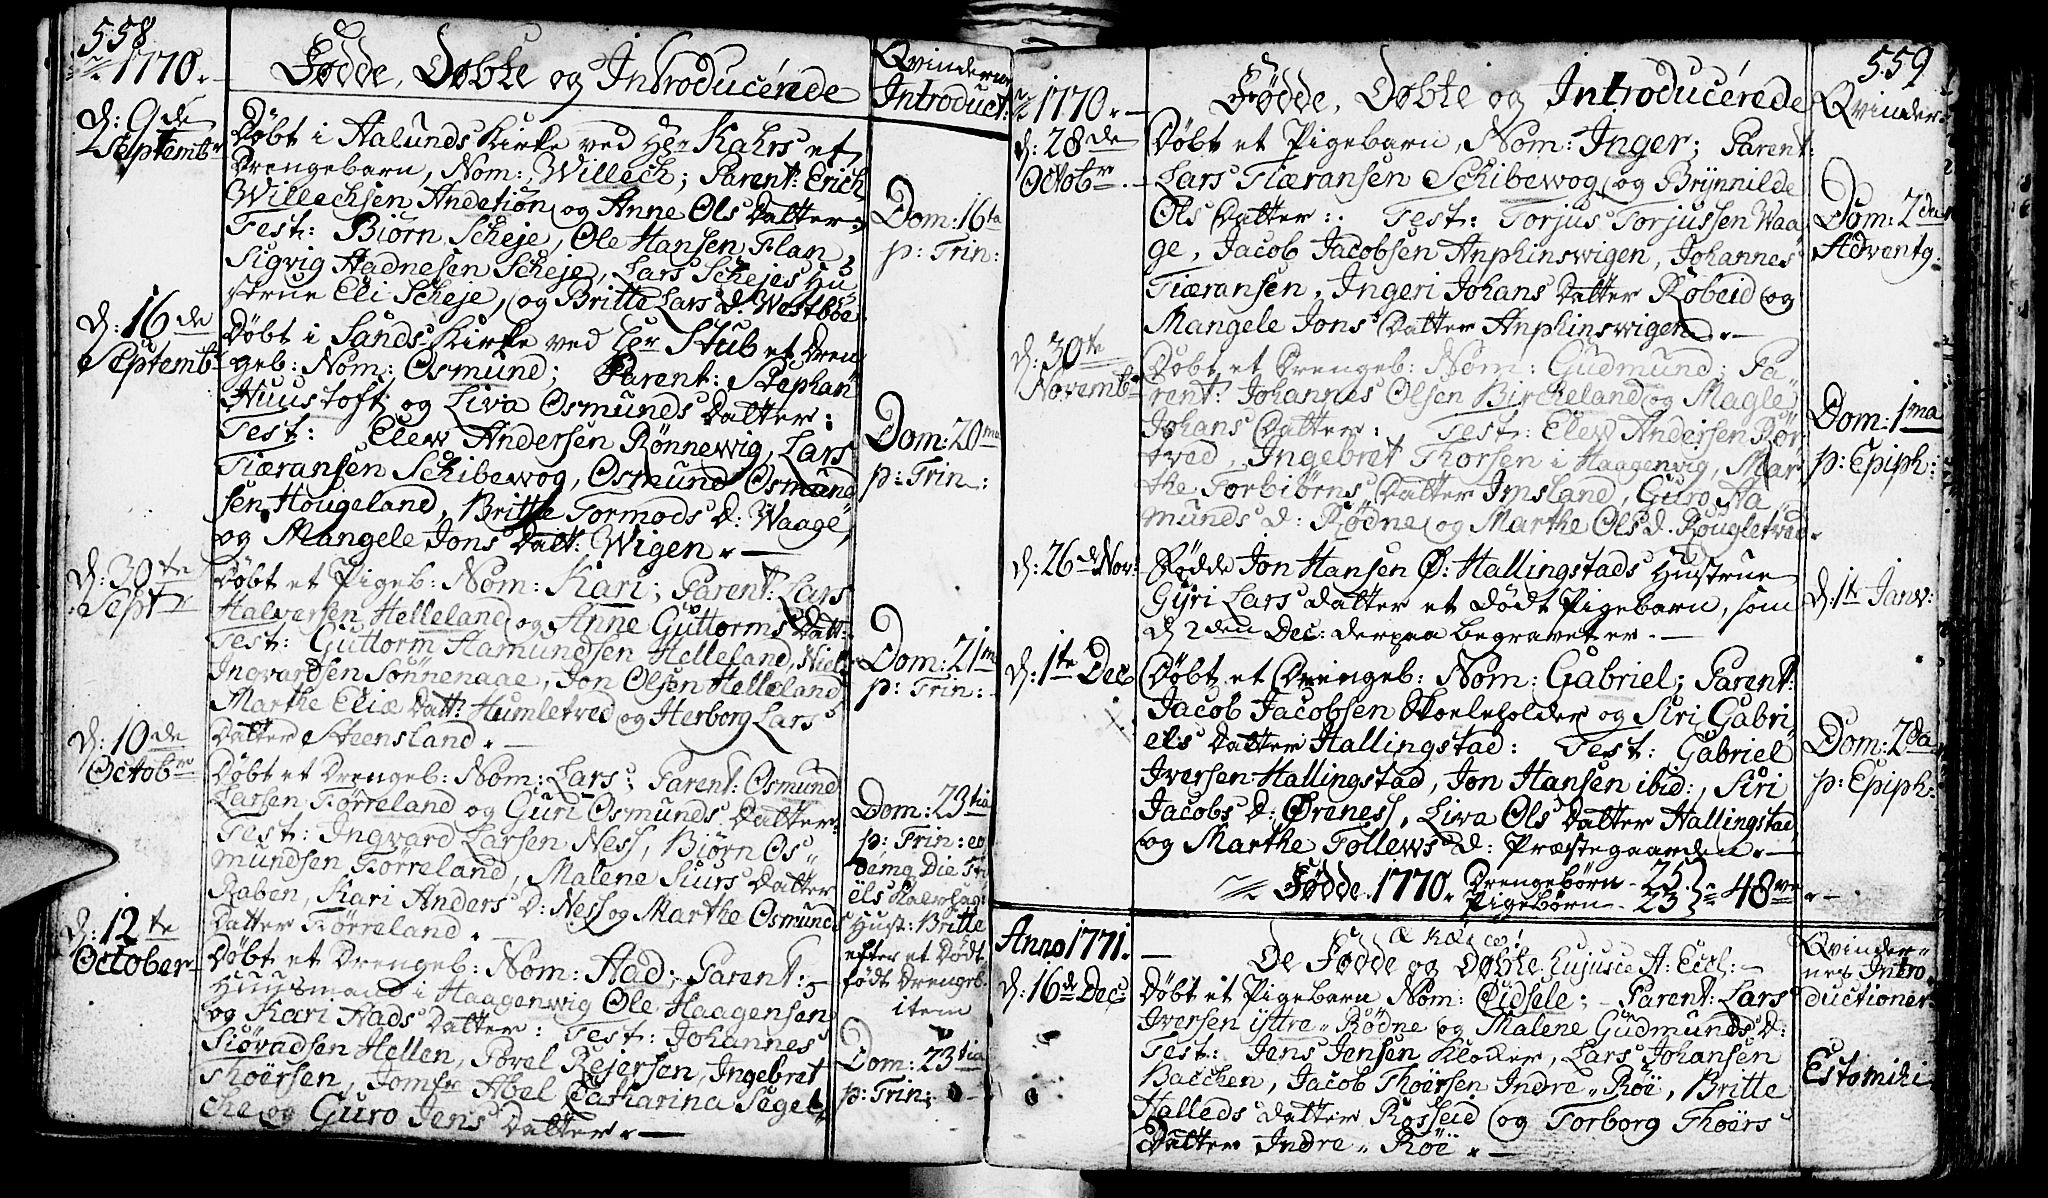 558
1770.
Fødde, Døbte og Introducérede
Qvinderne
Introduct:
d: 9de
Septembr
Døbt i Aalunds Kirke ved Hr Kahrs et
Drengebarn, Nom: Willech; Parent: Erich
Willechsen Andetion og Anne Ols Datter:
Test: Biørn Scheje, Ole Hansen Flan,
Sigvig Aadnesen Scheje, Lars Schejes Hu
strue Eli Scheje, og Britte Lars d. Westbøe
Dom: 16ta
p: Trin:
d: 16de
Septembr
Døbt i Sands Kirke ved Hr Stub et Dren
geb: Nom: Osmund; Parent: Stephan
Huustoft og Liva Osmunds Datter:
Test: Elew Andersen Rönnewig, Lars
Tiæransen Schibewog, Osmund Osmund
sen Hougeland, Britte Tormods d: Waage,
og Mangele Jons Datt: Wigen.
Dom: 20ma
p: Trin:
d: 30te
Septr
Døbt et Pigeb: Nom: Kari; Parent: Lars
Halversen Helleland og Anne Guttorms Datt:
Test: Guttorm Hamundsen Helleland, Niels
Ingvardsen Sønnenaae, Jon Olsen Helleland
Marthe Eliæ Datt: Humletved og Herborg Lars
Datter Steensland.
Dom: 21ma
p: Trin:
d: 10de
Octobr
Døbt et Drengeb: Nom: Lars; Parent: Osmund
Larsen Førreland og Guri Osmunds Datter
Test: Ingvard Larsen Ness, Biørn Os"
mundsen Førreland, Malene Siurs Datter
Raben, Kari Anders D: Ness og Marthe Osmunds
Datter Førreland.
Dom: 23tia
p: Trin: eo
demq Die
Hust: Britte
efter et Dødt
født Drengeb.
item
d: 12te
October
Døbt et Drengeb: Nom: Aad; Parent:
Huusmand i Haagenwig Ole Haagensen
og Kari Aads Datter: Test: Johannes
Siøvadsen Hellen, Povel Rejersen, Ingebret
Thoersen, Jomfr Abel Catharina Segel"
cke og Guro Jens Datter.
Dom: 23tia
p: Trin:
559
1770.
Fødde, Døbte og Introducérede
Qvinder
d: 28de
Octobr.
Døbt et Pigebarn, Nom: Inger; Parent:
Lars Tiæransen Schibewog og Brynnilde
Ols Datter: Test: Torjus Torjussen Waa"
ge, Jacob Jacobsen Anphinswigen, Johannes
Tiæransen, Ingeri Johans Datter Røbeid og
Mangele Jons Datter Anphinswigen.
Dom: 2da
Adventq.
d: 30te
Novembr
Døbt et Drengeb: Nom: Gudmund; Pa"
rent: Johannes Olsen Birckeland og Magle
Johans Datter: Test: Elew Andersen Rør
tved, Ingebret Thorsen i Haagenvig, Mar
the Torbiørns Datter Imsland, Guro Aa"
munds d: Rødne og Marthe Ols d. Rougletved.
Dom: 1ma
p: Epiph:
d: 26de Nov:
Fødde Jon Hansen Ø: Hallingstads Hustrue
Gyri Lars datter et dødt Pigebarn, som
d 2den Dec: derpaa begravet er.
d: 1te Janv:
d: 1te Dec
Døbt et Drengeb: Nom: Gabriel; Parent:
Jacob Jacobsen Skoeleholder og Siri Gabri
els Datter Hallingstad: Test: Gabriel
Iversen Hallingstad, Jon Hansen ibid:, Siri
Jacobs D: Øreness, Liva Ols Datter Hallingstad
og Marthe Tollews D: Præstegaarden.
Dom: 2da
p: Epiph:
Fødde 1770. Drengebørn - 25.
Pigebørn - 23 = 48ve
Anno 1771.
De Fødde og Døbte hujusce A: Eccl:
Qvinder-
nes Intro
ductioner
d: 16de Dec:
Døbt et Pigebarn Nom: Cidsele; Parent: Lars
Iversen ijttre Rødne og Malene Gudmunds D:
Test: Jens Jensen Klocker, Lars Johansen
Bacchen, Jacob Thoersen Indre Røe, Britte
Halleds Datter Rosseid og Torborg Thoers
Datter Indre Røe.
Estomihi